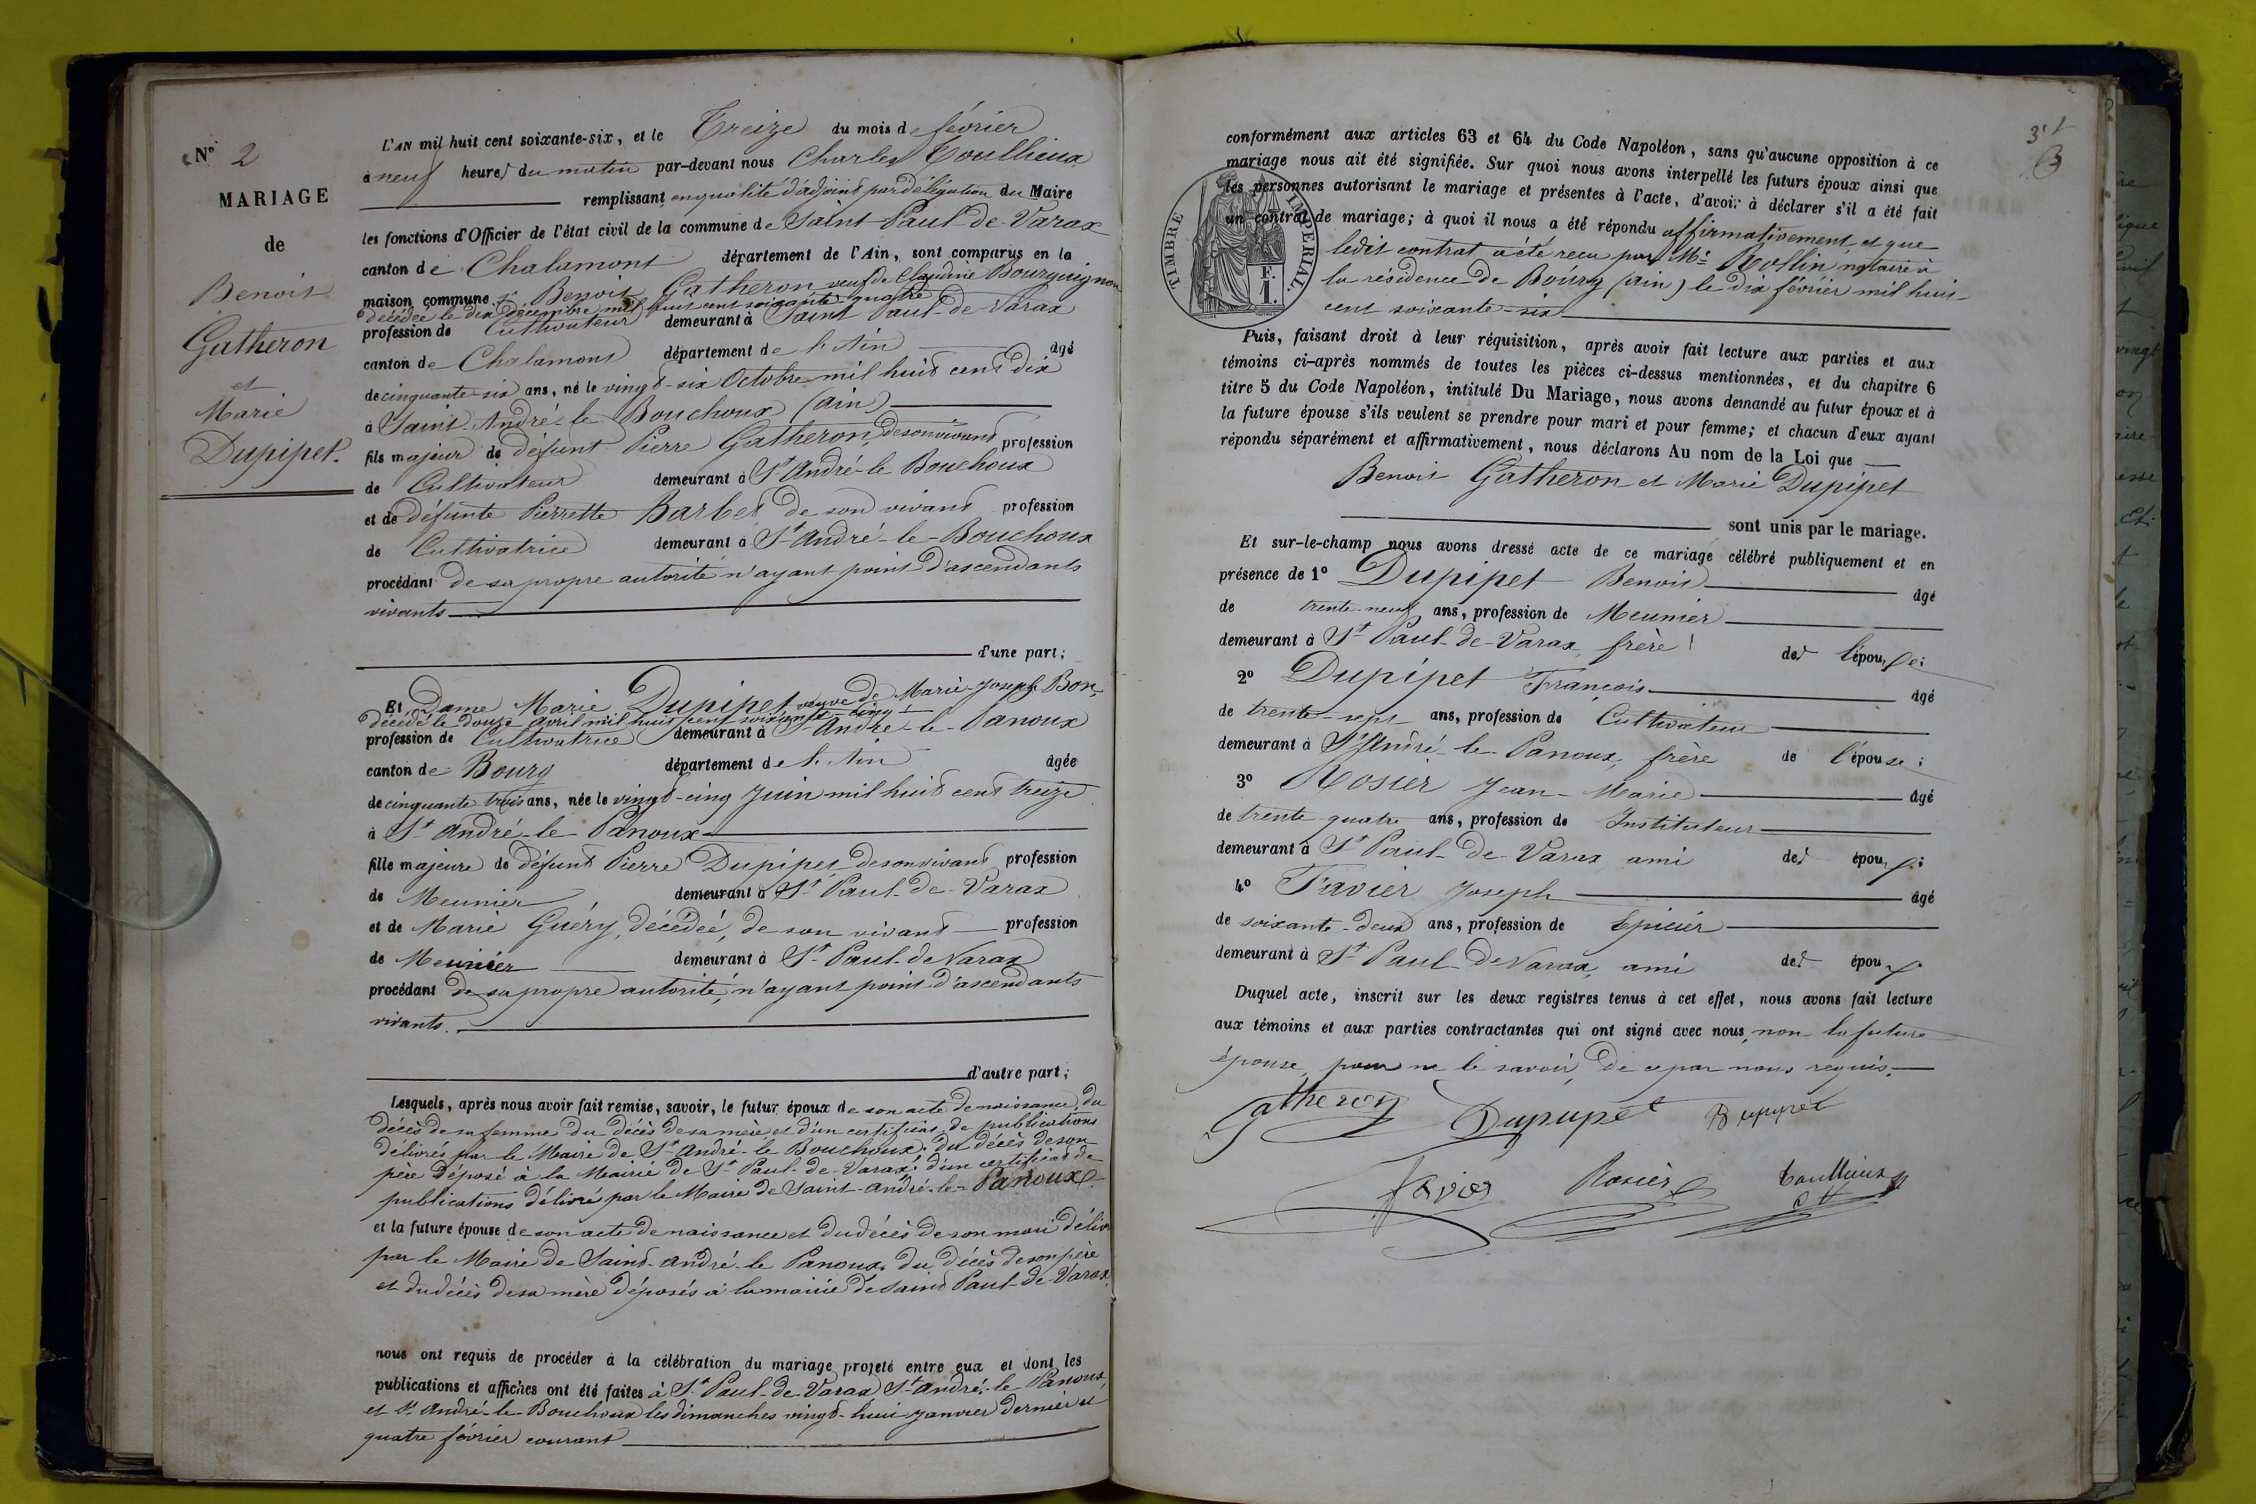 N° 2
MARIAGE
de
Benoit
Gatheron
et
Marie
Dupipet.
L'AN mil huit cent soixante-six, et le Treize du mois de février
à neuf heures du matin par-devant nous Charles Toullieux
remplissant en qualité d'adjoint par délégation du Maire
les fonctions d'Officier de l'état civil de la commune de Saint Paul-de-Varax
canton de Chalamont département de l'Ain, sont comparus en la
maison commune Sr Benoit Gatheron veuf de Claudine Bourguignon
décédée le dix décembre mil huit cent soixante quatre
profession de Cultivateur demeurant à Saint Paul-de-Varax
canton de Chalamont département de l'Ain âgé
de cinquante-six ans, né le vingt-six Octobre mil huit cent dix
à Saint-André-le Bouchoux (Ain)
fils majeur de défunt Pierre Gatheron, de son vivant profession
de Cultivateur demeurant à St André-le Bouchoux
et de défunte Pierrette Barbet de son vivant profession
de Cultivatrice demeurant à St André-le-Bouchoux
procédant de sa propre autorité n'ayant point d'ascendants
vivants
d'une part;
Et Dame Marie Dupipet veuve de Marie-Joseph Bon,
décédé le douze avril mil huit cent soixante-cinq
profession de Cultivatrice demeurant à St André-le-Panoux
canton de Bourg département de l'Ain âgée
de cinquante trois ans, née le vingt-cinq Juin mil huit cent treize
à St André-le-Panoux
fille majeure de défunt Pierre Dupipet, de son vivant profession
de Meunier demeurant à St Paul-de-Varax
et de Marie Guéry, décédée, de son vivant profession
de Meunier demeurant à St Paul-de Varax
procédant de sa propre autorité, n'ayant point d'ascendants
vivants.
d'autre part;
Lesquels, après nous avoir fait remise, savoir, le futur époux de son acte de naissance, du
décès de sa femme du décès de sa mère et d'un certificat de publications
délivrés par le Maire de St André-le Bouchoux; du décès de son
père déposé à la Mairie de St Paul-de-Varax; d'un certificat de
publications délivré par le Maire de Saint-André-le-Panoux
et la future épouse de son acte de naissance et du décès de son mari délivrés
par le Maire de Saint-André-le Panoux, du décès de son père
et du décès de sa mère déposés à la mairie de Saint Paul-de-Varax.
nous ont requis de procéder à la célébration du mariage projeté entre eux et dont les
publications et affiches ont été faites à St Paul-de-Varax St André-le-Panoux,
et St André-le-Bouchoux les dimanches vingt-huit janvier dernier et
quatre février courant
conformément aux articles 63 et 64 du Code Napoléon, sans qu'aucune opposition à ce
mariage nous ait été signifiée. Sur quoi nous avons interpellé les futurs époux ainsi que
les personnes autorisant le mariage et présentes à l'acte, d'avoir à déclarer s'il a été fait
un contrat de mariage; à quoi il nous a été répondu affirmativement et que
ledit contrat a été reçu par Me Rollin notaire à
la résidence de Bourg (Ain) le dix février mil huit
cent soixante-six
TIMBRE IMPERIAL.
F.
1.
Puis, faisant droit à leur réquisition, après avoir fait lecture aux parties et aux
témoins ci-après nommés de toutes les pièces ci-dessus mentionnées, et du chapitre 6
titre 5 du Code Napoléon, intitulé Du Mariage, nous avons demandé au futur époux et à
la future épouse s'ils veulent se prendre pour mari et pour femme; et chacun d'eux ayant
répondu séparément et affirmativement, nous déclarons Au nom de la Loi que
Benoit Gatheron et Marie Dupipet
sont unis par le mariage.
Et sur-le-champ nous avons dressé acte de ce mariage célébré publiquement et en
présence de 1° Dupipet Benoit âgé
de trente-neuf ans, profession de Meunier
demeurant à St Paul-de-Varax, frère de l'épouse;
2° Dupipet François âgé
de trente-sept ans, profession de Cultivateur
demeurant à St André-le-Panoux, frère de l'épouse;
3° Rosier Jean-Marie âgé
de trente-quatre ans, profession de Instituteur
demeurant à St Paul-de-Varax ami des époux;
4° Favier Joseph âgé
de soixante-deux ans, profession de Epicier
demeurant à St Paul-de Varax, ami des époux
Duquel acte, inscrit sur les deux registres tenus à cet effet, nous avons fait lecture
aux témoins et aux parties contractantes qui ont signé avec nous, non la future
épouse, pour ne le savoir, de ce par nous requis.
Gatheron Dupupet Dupupet
Favier Rosier Toullieux